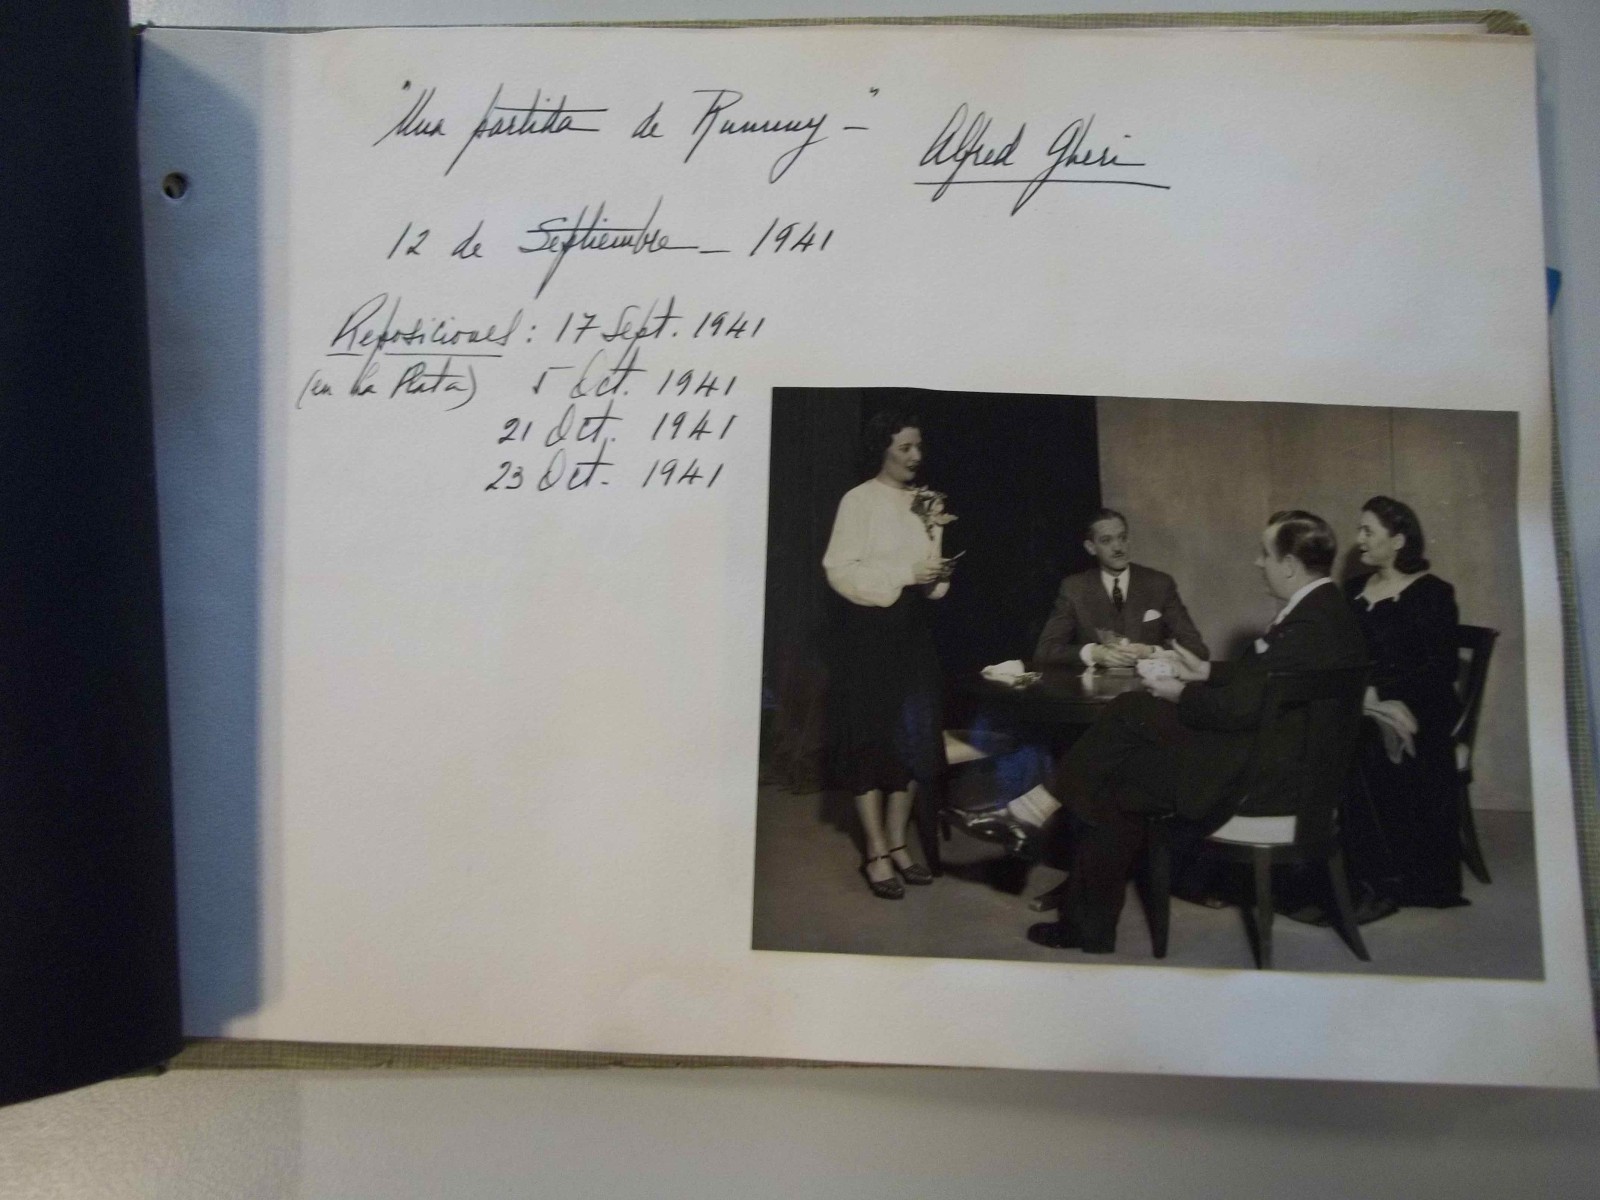 "Una partida de Rummy -"
Alfred Gheri
12 de Septiembre - 1941
Reposiciones: 17 Sept. 1941
(en La Plata) 5 Oct. 1941
21 Oct. 1941
23 Oct. 1941